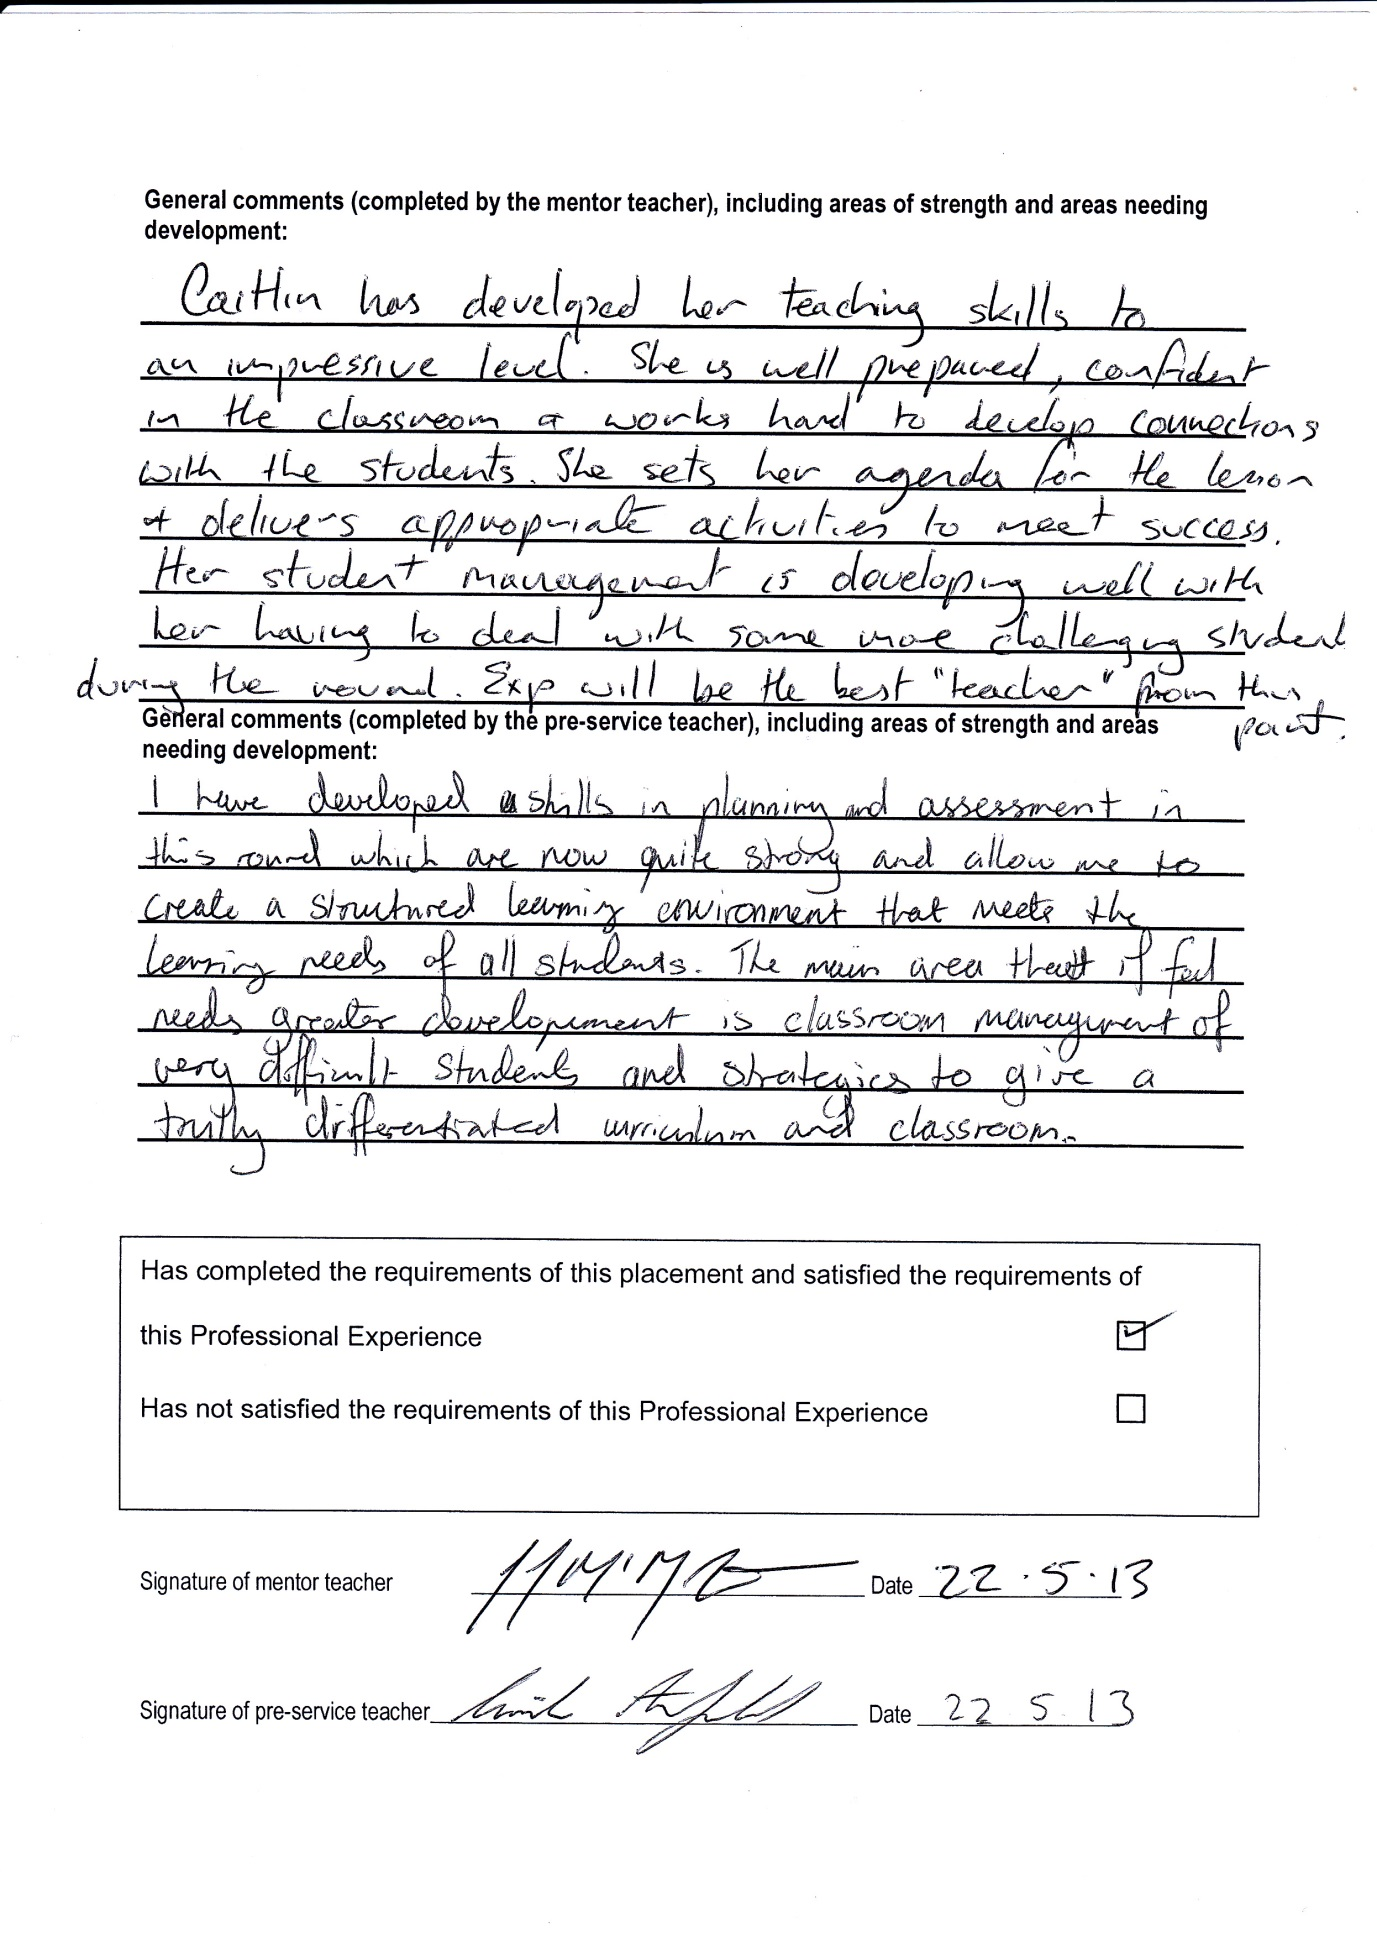 General comments (completed by the mentor teacher), including areas of strength and areas needing
development:
Caitlin has developed her teaching skills to
an impressive level. She is well prepared, confident
in the classroom & works hard to develop connections
with the students. She sets her agenda for the lesson
& delivers appropriate activities to meet success.
Her student management is developing well with
her having to deal with some more challenging student
during the round. Exp will be the best "teacher" from this
point.
General comments (completed by the pre-service teacher), including areas of strength and areas
needing development:
I have developed skills in planning and assessment in
this round which are now quite strong and allow me to
create a structured learning environment that meets the
learning needs of all students. The main area that if feel
needs greater development is classroom management of
very difficult students and strategies to give a
truthy differentiated curriculum and classroom.
Has completed the requirements of this placement and satisfied the requirements of
this Professional Experience
Has not satisfied the requirements of this Professional Experience
Signature of mentor teacher Date 22.5.13
Signature of pre-service teacher Date 22 5 13